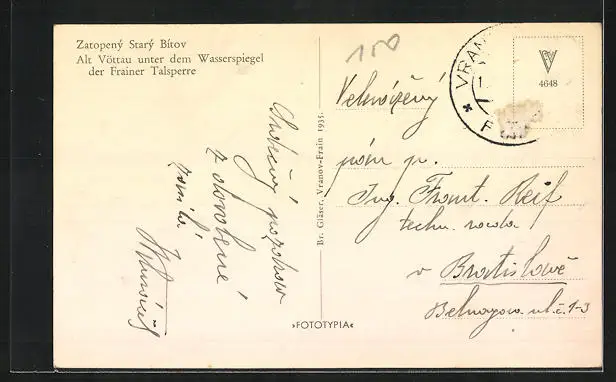 Zatopený Starý Bítov
Alt Vöttau unter dem Wasserspiegel
der Frainer Talsperre
150
VRAN
F
4648
Velevážený
pán p.
Ing. Frant. Reif
techn. rada
v Bratislavě
ul. č. 1-3
Srdečný pozdrav
z
Br. Gläser, Vranov-Frain 1935.
»FOTOTYPIA«